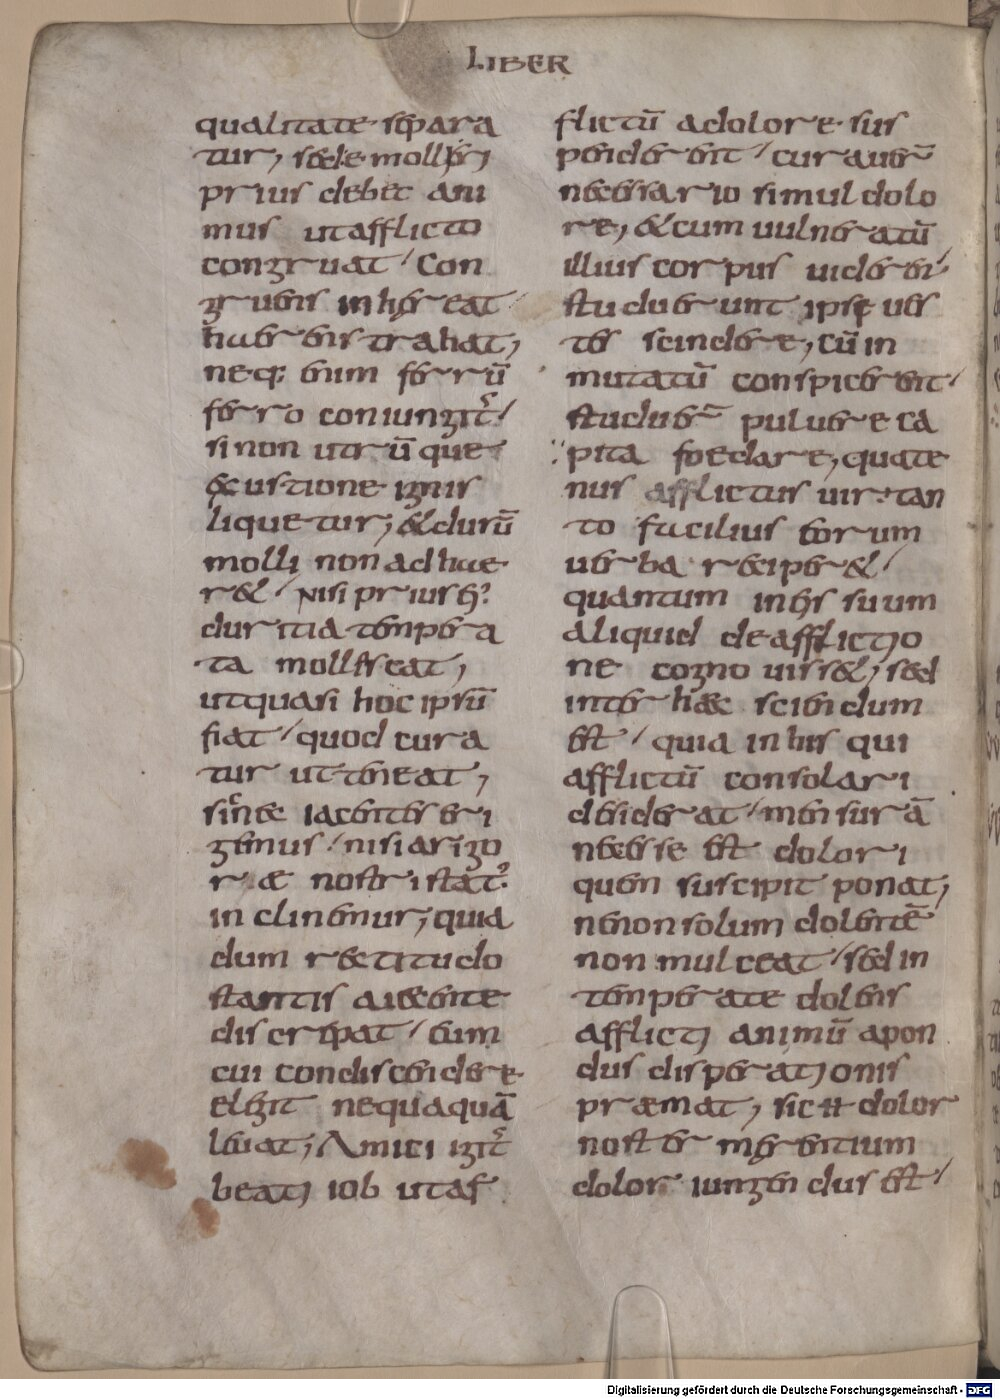 LIBER
qualitate separa
tur, sed emolliri
prius debet ani
mus ut afflicto
congruat / Con
gruens inhereat /
hęrens trahat,
neq; enim ferrū
ferro coniungit᷒ /
si non utrūque
exustione ignis
liquetur, & durū
molli non adhae
r& / nisi prius hᷣ
duritia tempera
ta mollescat,
ut quasi hoc ipsū
fiat / quod cura
tur ut teneat,
sic nec iacentes eri
gimus / nisi a rigo
ræ nostri stat᷒
inclinemur, quia
dum rectitudo
stantis a iacente
discrepat / eum
cui condiscendere
elegit nequaquā
leuat, Amici igit᷒
beati iob ut af
flictū a dolore sus
penderent / curauer̄
necessario simul dolo
re, & cum uulneratū
illius corpus uideren /
studuerunt ipse ues
tes scindere, cū in
mutatū conspicerent /
studuer̄ puluere ca
pita foedare, quate
nus afflictus uir tan
to facilius eorum
uerba reciper& /
quantum in his suum
aliquid de afflictio
ne cognouiss&, sed
inter haec sciendum
est / quia in his qui
afflictū consolari
desiderat / mensurā
necesse est dolori
quem suscipit ponat,
ne non solum dolentē
non mulceat / sed in
temperate dolens
afflicti animū a pon
dus disperationis
præmat, sic ÷ dolor
noster merentium
dolori iungendus est /
Digitalisierung gefördert durch die Deutsche Forschungsgemeinschaft - DFG